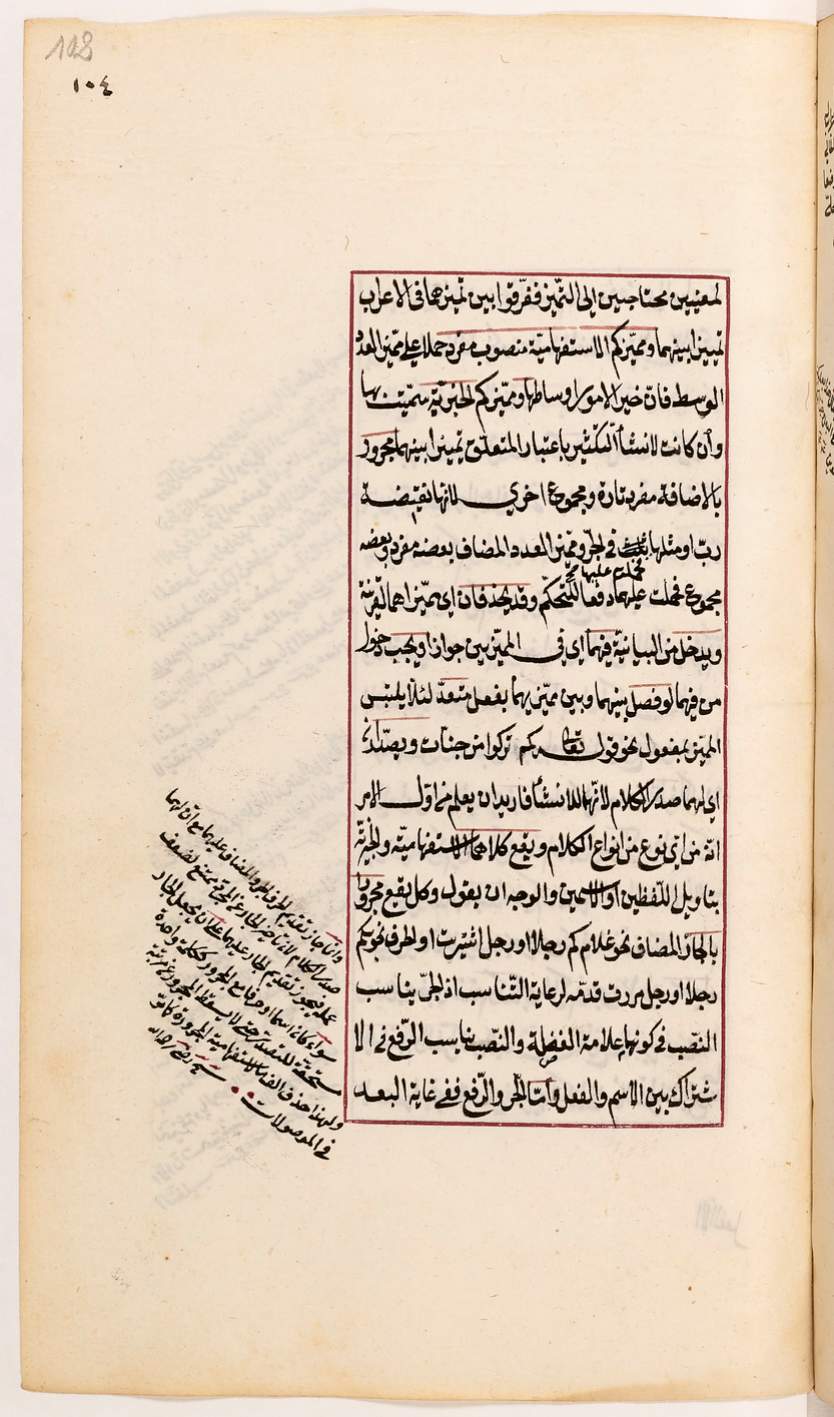 108
١٠٤
لمعنيين محتاجين إلى التميز ففرّقوا بين تميزهما فى الاعراب
تمييزا بينهما ومميّز كم الاستفهاميّة منصوب مفرد حملا على مميّز العدد
الوسط فان خير الامور اوساطها ومميّز كم الخبريّة سميّت بها
وأن كانت لانشأ التكثير باعتبار المتعلق تميزا بينهما مجرور
بالاضافة مفرد تارة ومجموع اخرى لانها نقيضة
ربّ او مثلها فى الجرّ ومميّز العدد المضاف بعضه مفرد وبعضه
مجموع فحملت عليهما دفعا للتحكّم وقد يحذفان اى مميّزاهما لقرينة
ويدخل من البيانيّة فيهما اى فى المميّزين جوازا ويجب دخول
من فيهما لو فصل بينهما وبين مميّزيهما بفعل متعدّ لئلا يلتبس
المميّز بمفعول نحو قوله تعالى كم تركوا من جنات ويصدّران
اى لهما صدر الكلام لأنّهما للانشأ فاريد ان يعلم من اوّل الامر
انّه من اىّ نوع من انواع الكلام ويقع كلاهما الاستفهاميّة والخبريّة
بتاويل اللّفظين او الاسمين والوجه ان يقول وكل يقع مجرورا
بالجارّ المضاف نحو غلام كم رجلا او رجل اشتريت او الحرف نحو بكم
رجلا او رجل مررت قدّمه لرعاية التّناسب اذ الجرّ يناسب
النصب فى كونها علامة الفضلة والنّصب يناسب الرّفع فى الا
شتراك بين الاسم والفعل وامّا الجرّ والرّفع ففى غاية البعد
وانما جاز تقديم الحرف الجر والمضاف عليهما مع ان لهما
صدر الكلام لان تاخير الجار عن المجرور ممتنع لضعف
عمله فيجوز تقديم الجار عليهما على ان يجعل الجار
سواء كان اسما او حرفا مع المجرور ككلمة واحدة
مستحقة للتصدر حتى لا يسقط المجرور عن مرتبته
ولهذا حذف الف ما الاستفهامية المجرورة كما
فى الموصولات